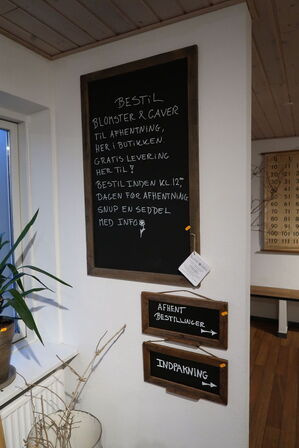 BESTIL
BLOMSTER & GAVER
TIL AFHENTNING,
HER I BUTIKKEN.
GRATIS LEVERING
HER TIL!
BESTIL INDEN KL 12,00
DAGEN FØR AFHENTNING
SNUP EN SEDDEL
MED INFO
AFHENT
BESTILLINGER
INDPAKNING